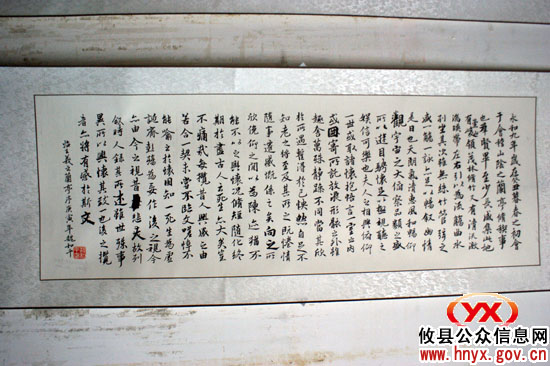 永和九年歲在癸丑暮春之初會
于會稽山陰之蘭亭脩禊事
也羣賢畢至少長咸集此地
有崇山峻領茂林脩竹又有清流激
湍映帶左右引以為流觴曲水
列坐其次雖無絲竹管弦之
盛一觴一詠亦足以暢叙幽情
是日也天朗氣清惠風和暢仰
觀宇宙之大俯察品類之盛
所以遊目騁懷足以極視聽之
娛信可樂也夫人之相與俯仰
一世或取諸懷抱悟言一室之內
或因寄所託放浪形骸之外雖
趣舍萬殊靜躁不同當其欣
於所遇蹔得於己怏然自足不
知老之將至及其所之既惓情
隨事遷感慨係之矣向之所
欣俛仰之閒以為陳迹猶不
能不以之興懷況脩短隨化終
期於盡古人云死生亦大矣豈
不痛哉每攬昔人興感之由
若合一契未嘗不臨文嗟悼不
能喻之於懷固知一死生為虛
誕齊彭殤為妄作後之視今
亦由今之視昔悲夫故列
叙時人錄其所述雖世殊事
異所以興懷其致一也後之攬
者亦將有感於斯文
羲之蘭亭序庚寅年
YX
攸县公众信息网
www.hnyx.gov.cn